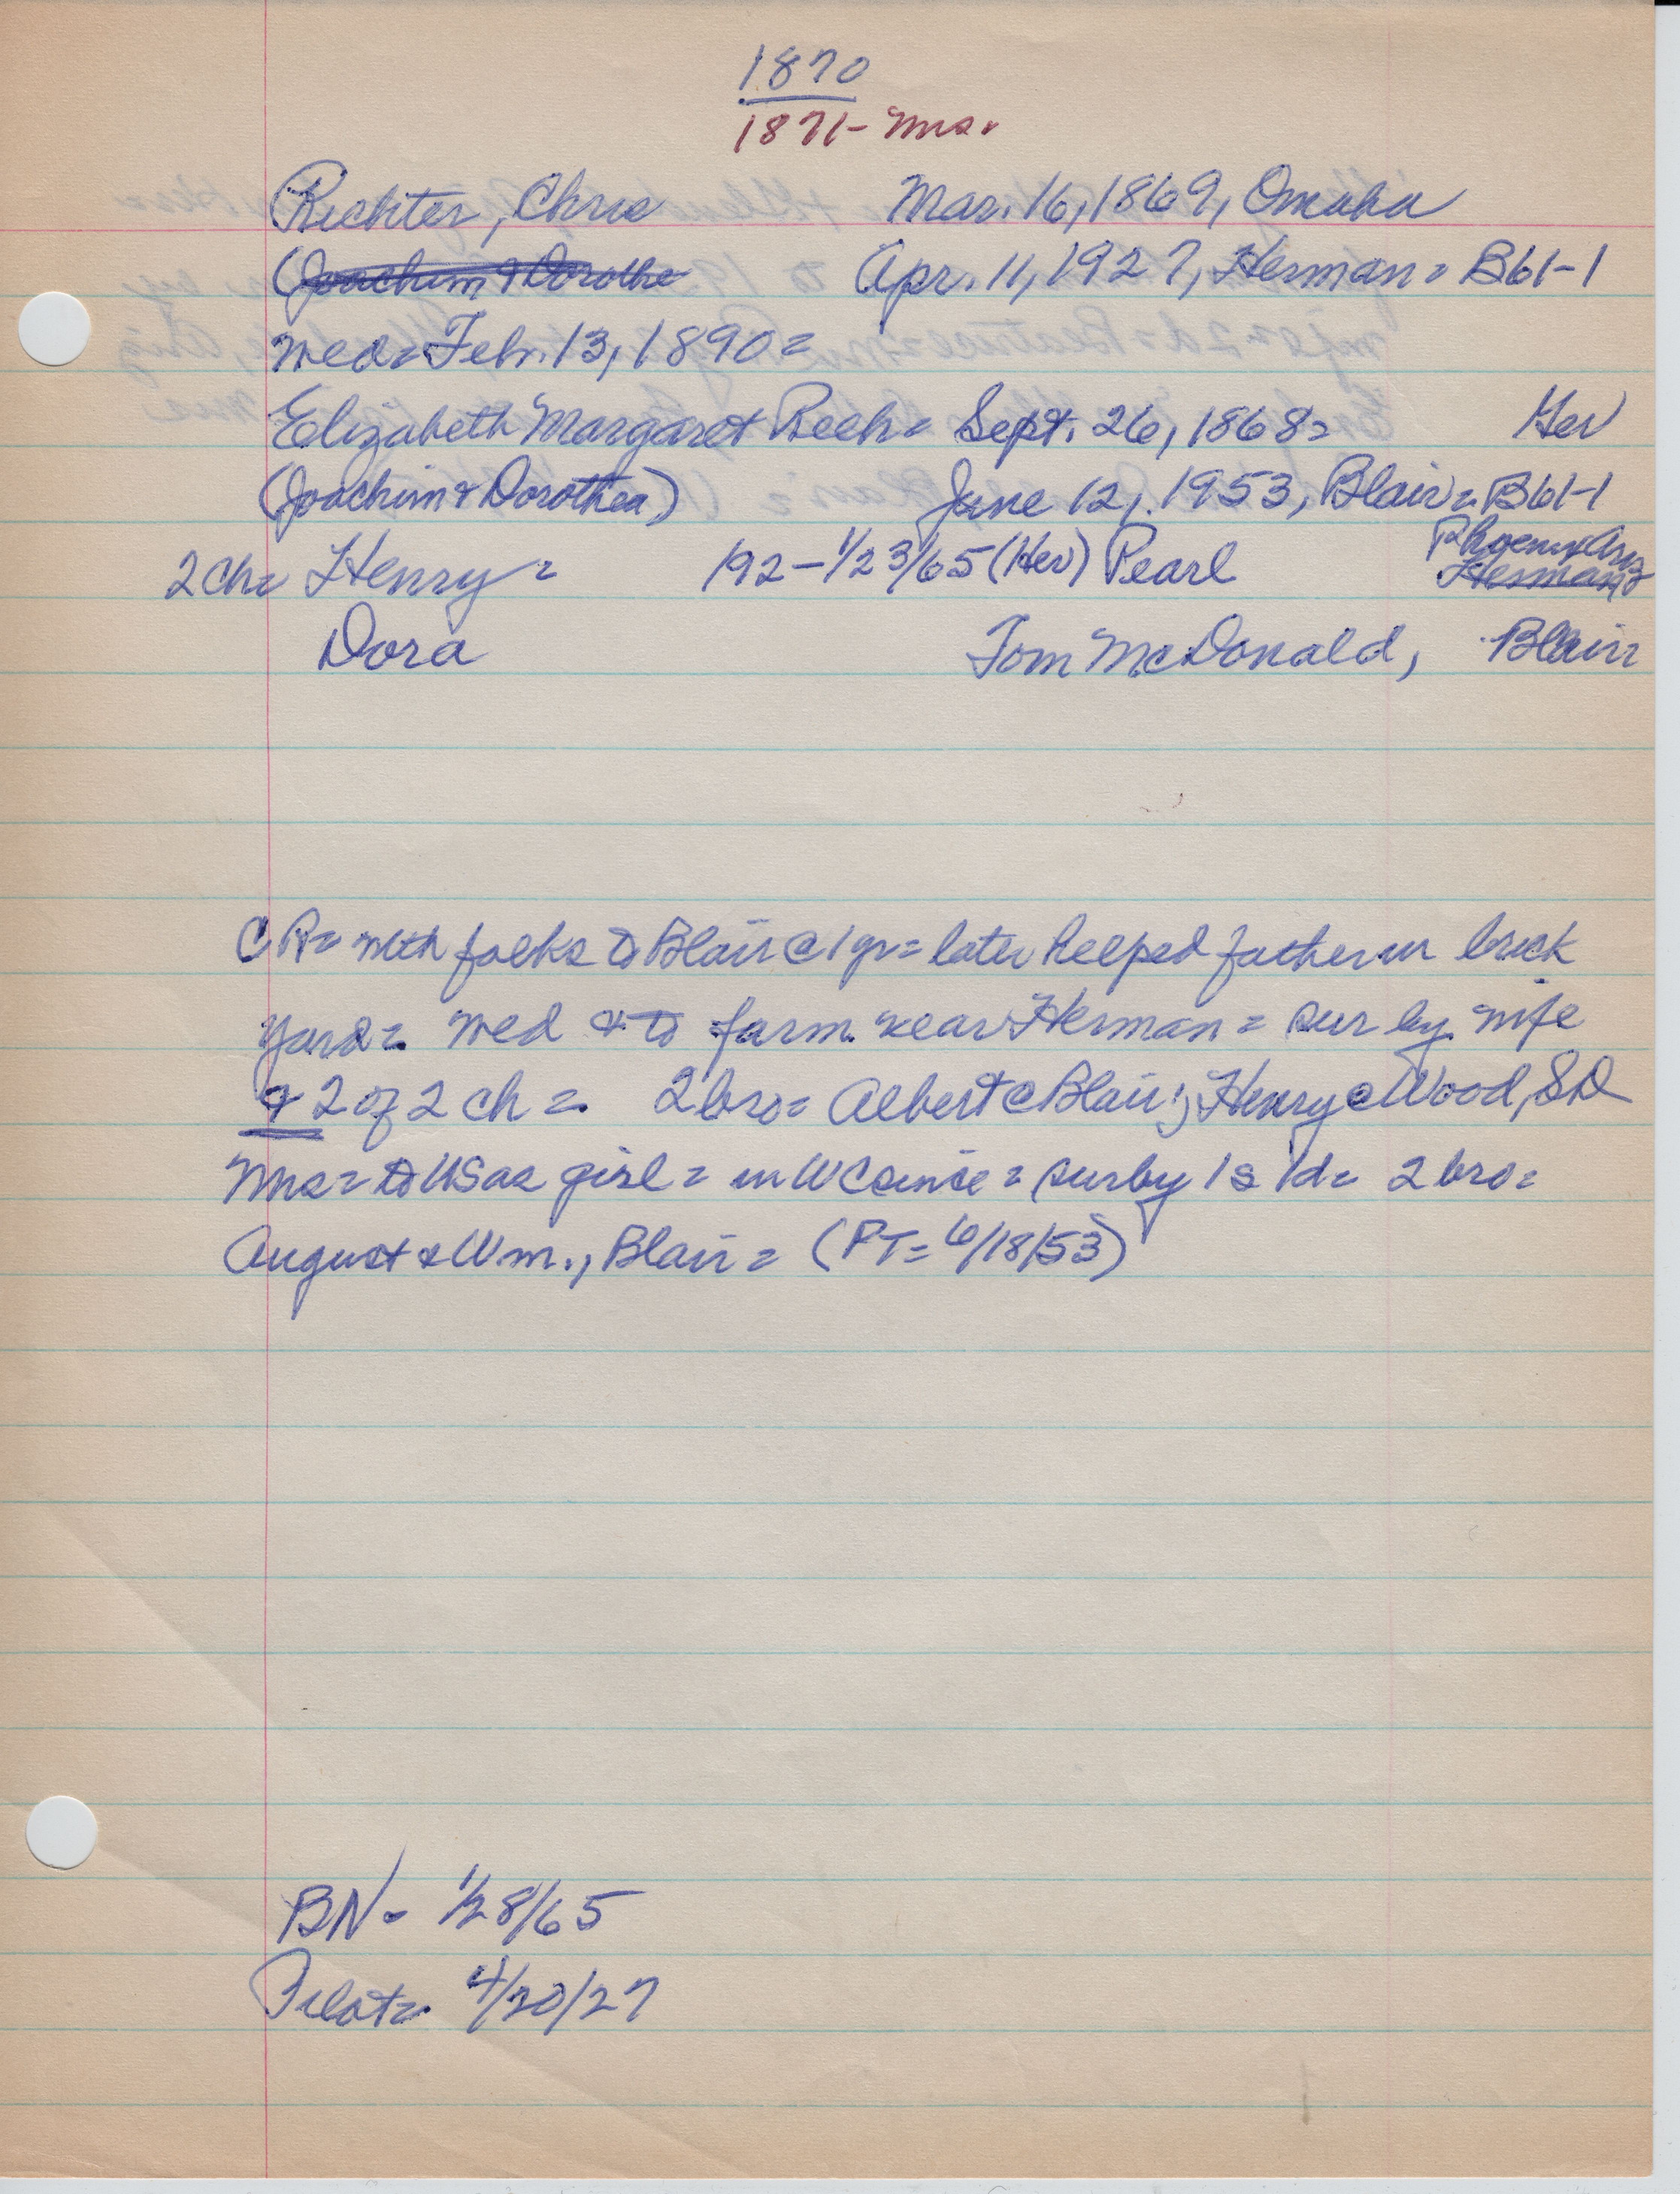 1870
1871- Mrs.
Richter, Chris Mar. 16, 1869, Omaha
(Joachim & Dorothe Apr. 11, 1927, Herman = B61-1
wed = Febr. 13, 1890 =
Elizabeth Margaret Reeh = Sept. 26, 1868 = Ger
(Joachim & Dorothea) June 12, 1953, Blair = B61-1
2 ch = Henry = 192 - 1/23/65 (Her) Pearl Phoenix Ariz
Herman
Dora Tom McDonald, Blair
CR = with folks to Blair @ 1 yr = later helped father in brick
yard = wed & to farm near Herman = sur by wife
& 2 of 2 ch = 2 bro = Albert @ Blair; Henry @ Wood, SD
Mrs = to US as girl = in WC since = sur by 1 s 1 d = 2 bro =
August & Wm., Blair = (PT = 6/18/53)
BN = 1/28/65
Pilot = 4/20/27